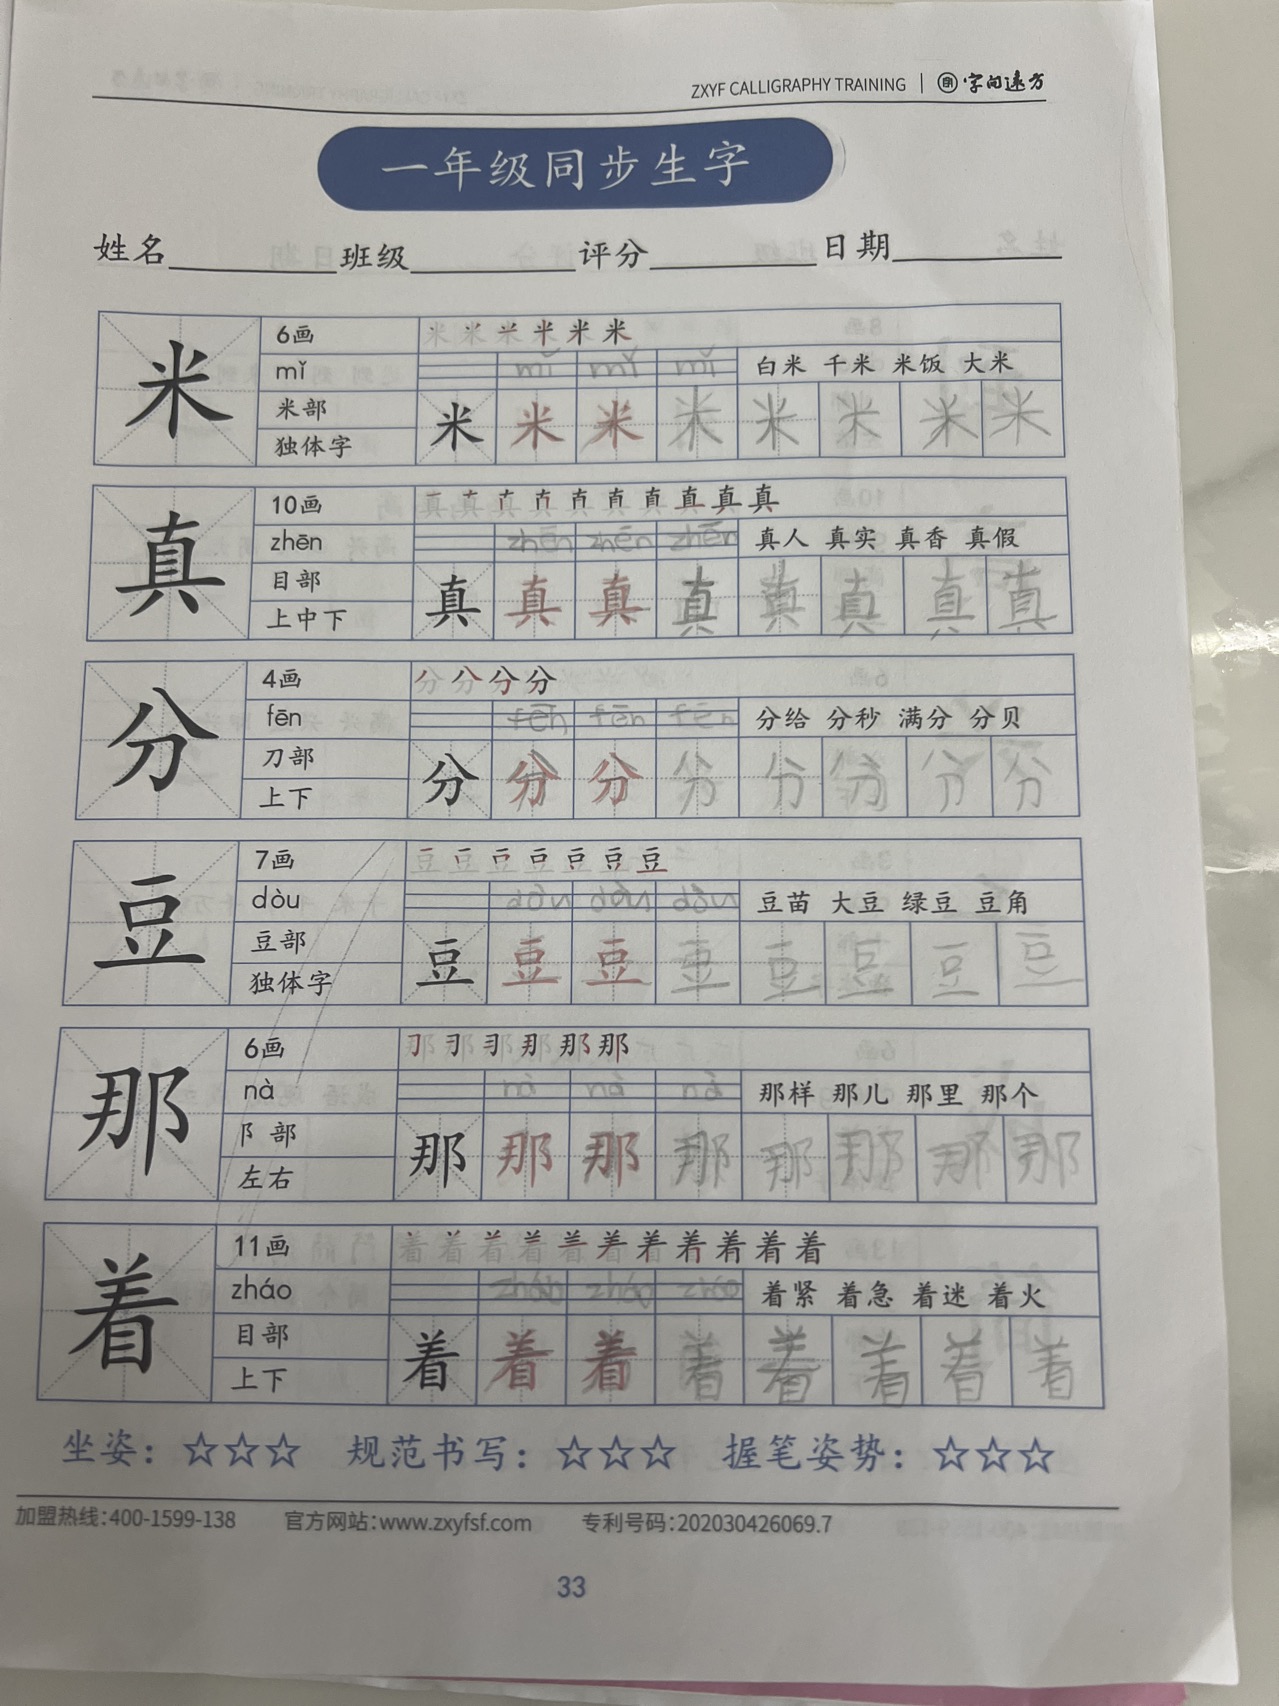 ZXYF CALLIGRAPHY TRAINING | 字间远方
一年级同步生字
姓名 班级 评分 日期
米 6画 米 米 米 米 米 米
mǐ mǐ mǐ mǐ 白米 千米 米饭 大米
米部 米 米 米 米 米 米 米 米
独体字
真 10画 真 真 真
zhēn zhēn zhēn zhēn 真人 真实 真香 真假
目部 真 真 真 真 真 真 真 真
上中下
分 4画 分 分 分 分
fēn fēn fēn fēn 分给 分秒 满分 分贝
刀部 分 分 分 分 分 分 分 分
上下
豆 7画 豆 豆 豆 豆 豆 豆 豆
dòu 豆苗 大豆 绿豆 豆角
豆部 豆 豆 豆 豆 豆 豆 豆 豆
独体字
那 6画 那 那 那 那 那 那
nà nà nà nà 那样 那儿 那里 那个
阝部 那 那 那 那 那 那 那 那
左右
着 11画 着 着 着 着 着 着 着 着 着 着 着
zháo zháo zháo zháo 着紧 着急 着迷 着火
目部 着 着 着 着 着 着 着 着
上下
坐姿：☆☆☆ 规范书写：☆☆☆ 握笔姿势：☆☆☆
加盟热线：400-1599-138 官方网站：www.zxyfsf.com 专利号码：202030426069.7
33